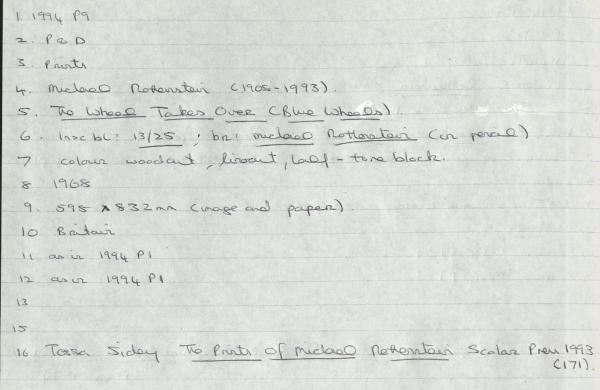 1. 1994 P9
2. P & D
3. Prints
4. Michael Rothenstein (1908-1993).
5. The Wheel Takes Over (Blue Wheels)
6. Insc bl: 13/25 ; br: Michael Rothenstein (in pencil)
7 colour woodcut, linocut, half-tone block.
8 1968
9. 595 x 832mm (image and paper)
10 Britain
11 as in 1994 P1
12 as in 1994 P1
13
15
16 Tessa Sidey The Prints of Michael Rothenstein Scolar Press 1993
(171).